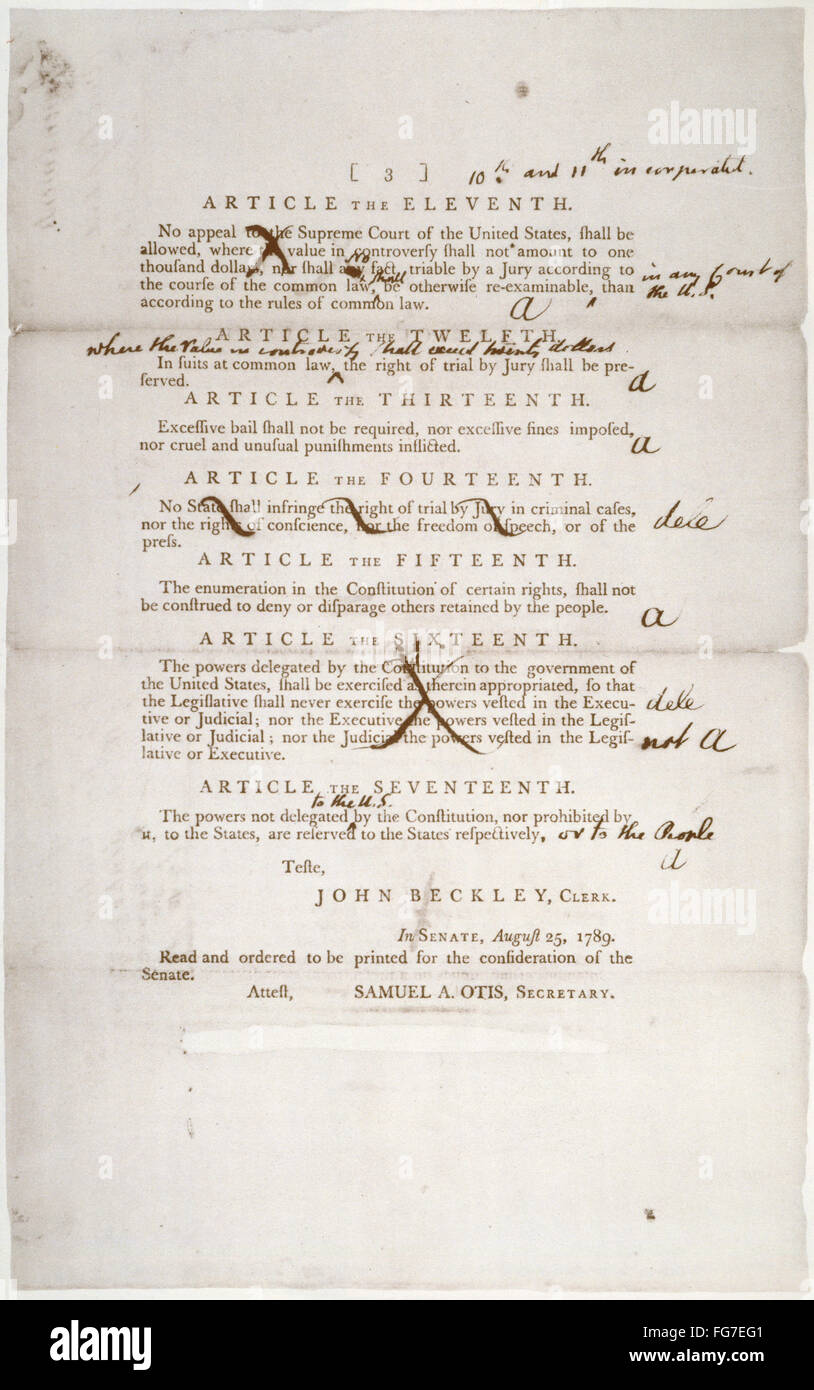 [ 3 ] 10th and 11th incorporated.
ARTICLE THE ELEVENTH.
No appeal to the Supreme Court of the United States, ſhall be
allowed, where the value in controverſy ſhall not amount to one
thouſand dollars, nor ſhall any fact, triable by a Jury according to
no
ſhall
the courſe of the common law, be otherwiſe re-examinable, than
in any Court of
the U.S.
according to the rules of common law.
a
ARTICLE THE TWELFTH.
where the value in controversy shall exceed twenty dollars
In ſuits at common law, the right of trial by Jury ſhall be pre-
ſerved.
a
ARTICLE THE THIRTEENTH.
Exceſſive bail ſhall not be required, nor exceſſive fines impoſed,
nor cruel and unuſual puniſhments inflicted.
a
ARTICLE THE FOURTEENTH.
No State ſhall infringe the right of trial by Jury in criminal caſes,
nor the rights of conſcience, nor the freedom of ſpeech, or of the
preſs.
dele
ARTICLE THE FIFTEENTH.
The enumeration in the Conſtitution of certain rights, ſhall not
be conſtrued to deny or diſparage others retained by the people.
a
ARTICLE THE SIXTEENTH.
The powers delegated by the Conſtitution to the government of
the United States, ſhall be exerciſed as therein appropriated, ſo that
the Legiſlative ſhall never exerciſe the powers veſted in the Execu-
tive or Judicial; nor the Executive the powers veſted in the Legiſ-
lative or Judicial; nor the Judicial the powers veſted in the Legiſ-
lative or Executive.
dele
not a
ARTICLE THE SEVENTEENTH.
to the U.S.
The powers not delegated by the Conſtitution, nor prohibited by
it, to the States, are reſerved to the States reſpectively, or to the People
a
Teſte,
JOHN BECKLEY, CLERK.
In SENATE, Auguſt 25, 1789.
Read and ordered to be printed for the conſideration of the
Senate.
Atteſt, SAMUEL A. OTIS, SECRETARY.
alamy
alamy
alamy
alamy
alamy
alamy
Image ID: FG7EG1
www.alamy.com